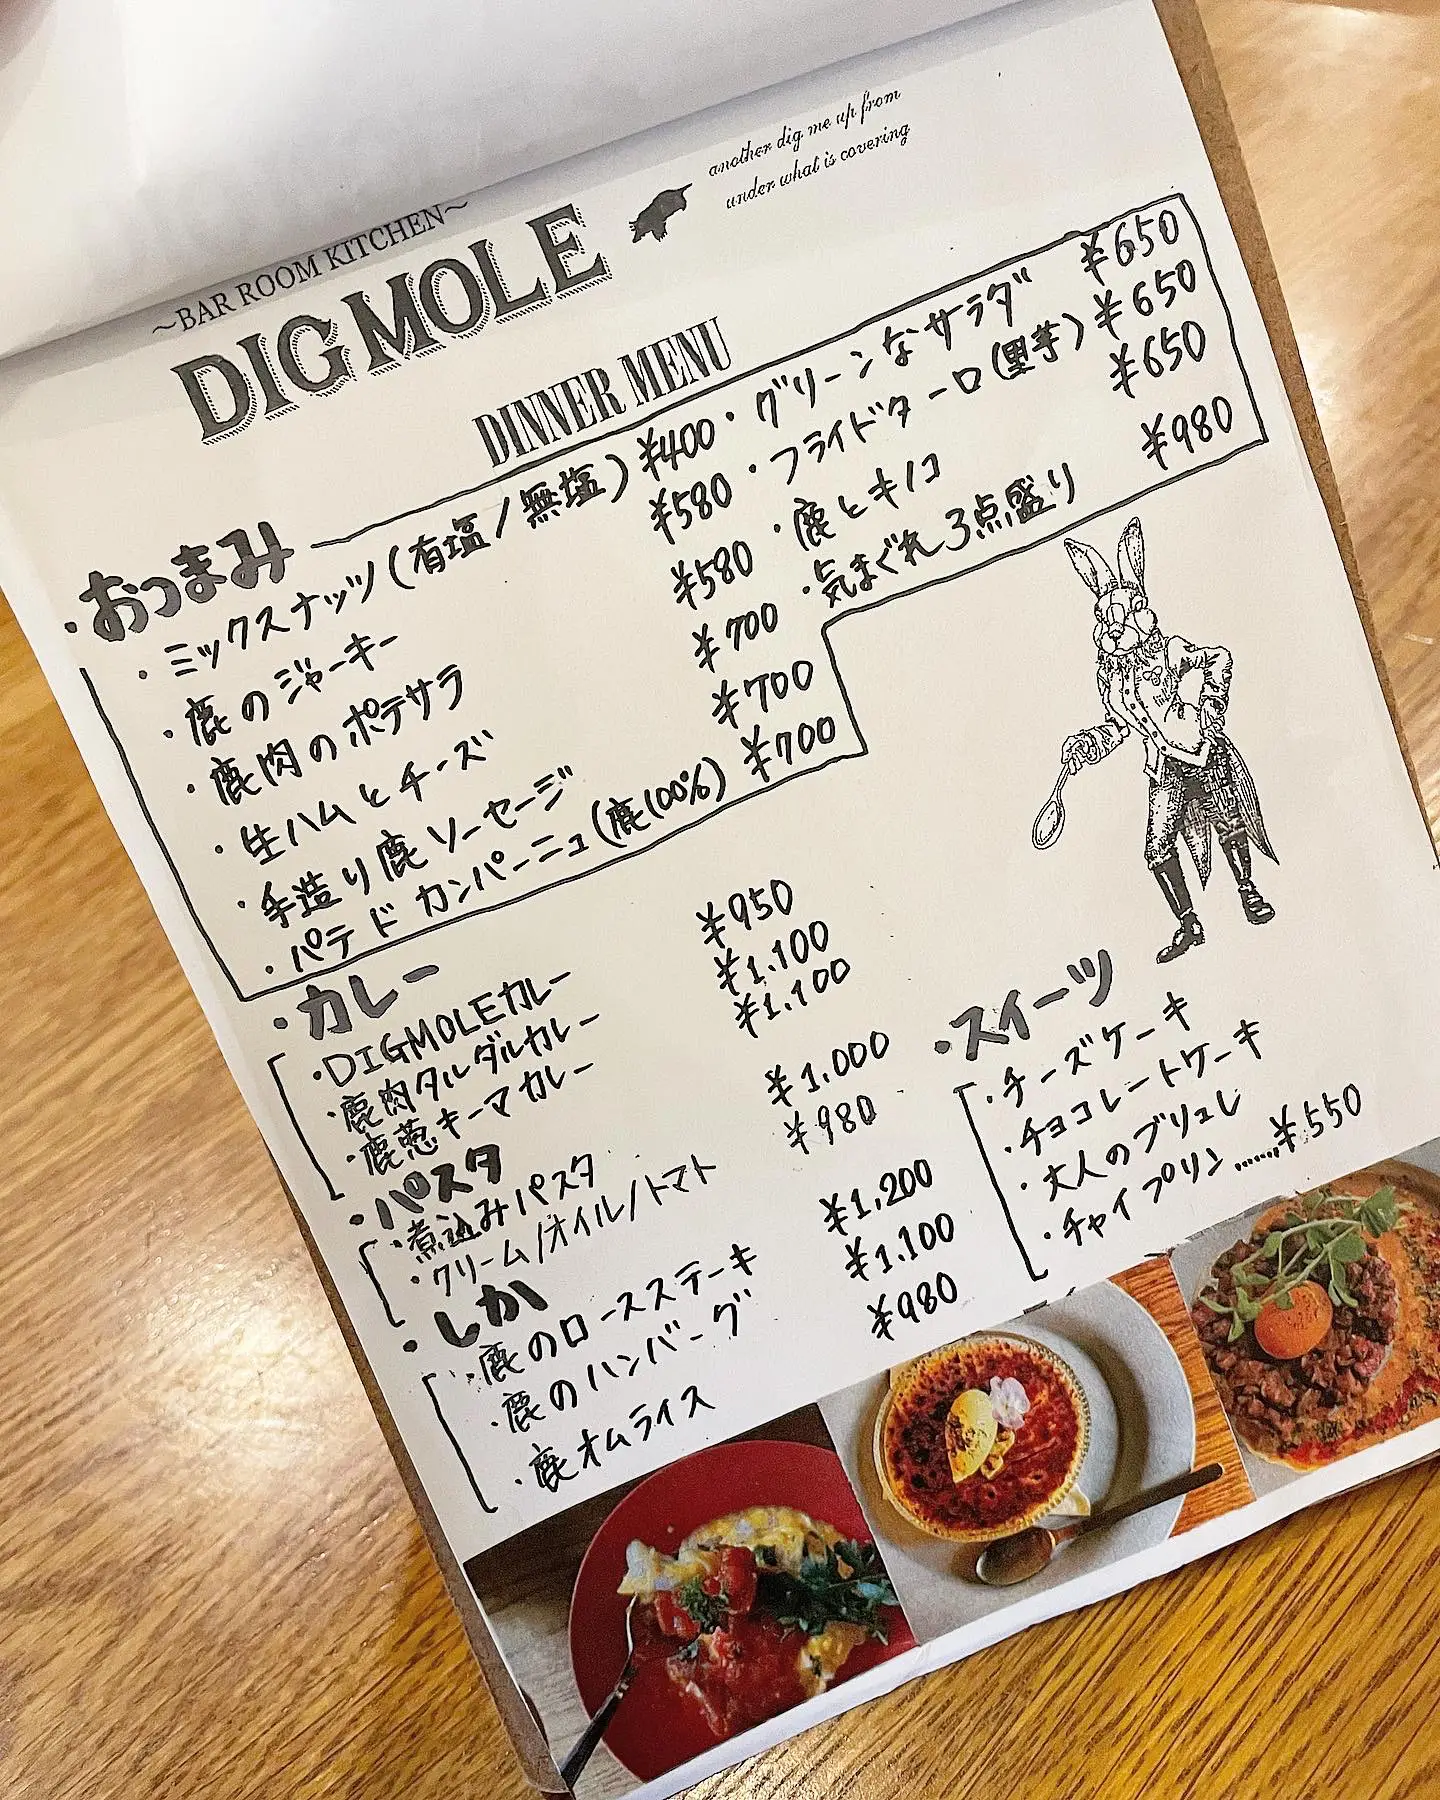 ~BAR ROOM KITCHEN~
DIG MOLE
another dig me up from
under what is covering
DINNER MENU
・おつまみ
・ミックスナッツ(有塩/無塩) ¥400
・鹿のジャーキー ¥580
・鹿肉のポテサラ ¥580
・生ハムとチーズ ¥700
・手造り鹿ソーセージ ¥700
・パテ ド カンパーニュ(鹿100%) ¥700
・グリーンなサラダ ¥650
・フライドターロ(里芋) ¥650
・鹿とキノコ ¥650
・気まぐれ3点盛り ¥980
・カレー
・DIGMOLEカレー ¥950
・鹿肉タルダルカレー ¥1.100
・鹿葱キーマカレー ¥1.100
・パスタ
・煮込みパスタ ¥1.000
・クリーム/オイル/トマト ¥980
・しか
・鹿のロースステーキ ¥1,200
・鹿のハンバーグ ¥1.100
・鹿オムライス ¥980
・スイーツ
・チーズケーキ
・チョコレートケーキ
・大人のブリュレ
・チャイプリン ……¥550